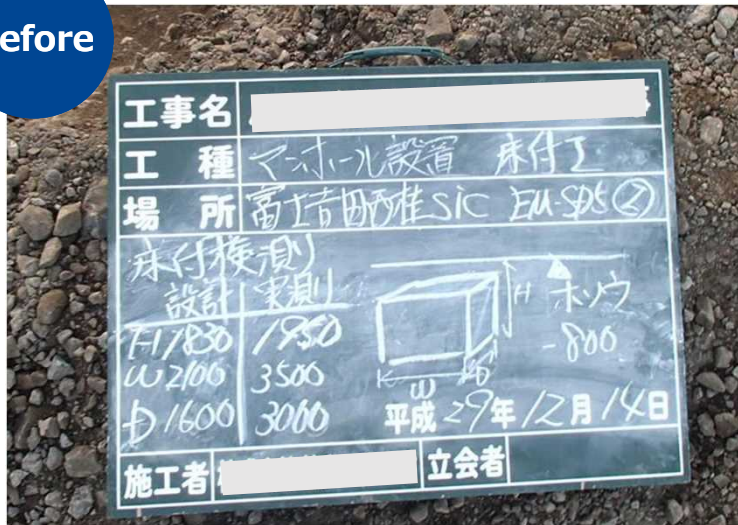 efore
工事名
工種 マンホール設置 床付工
場所 富士吉田西桂SIC EM-SD5②
床付検測
設計 実測
H1830 1950
W2100 3500
D1600 3000
H
W
D
ホソウ
-800
平成29年12月14日
施工者
立会者